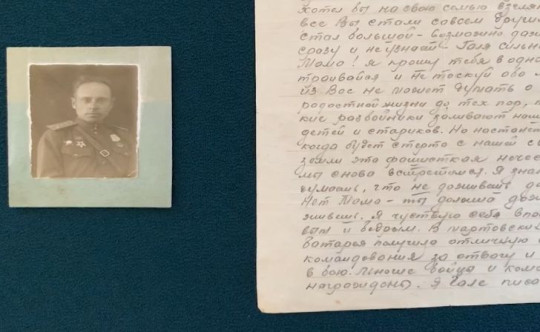 хотел бы на свою семью взглян
все Вы стали совсем други
стал большой - возможно да
сразу и не узнаешь Галя сильн
Мама! Я прошу тебя в одно
траивайся и не тоскуй обо
из Вас не может думать о
радостной жизни до тех пор, по
кие разбойники заливают наш
детей и стариков. Но настане
когда будет стерто с нашей с
земли эта фашистская нече
мы снова встретимся. Я зна
думаешь, что не доживешь до
Нет Мама - ты должна до
живешь. Я чувствую себя впо
вым и бодрым. В мартовски
батарея получила отличную
командования за отвагу и
в бою. Многие бойцы и ком
награждены. Я Гале писа